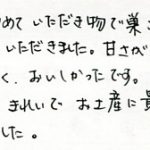 めて いただき物で巣
いただきました。甘さが
く、おいしかったです。
きれいで お土産に貴
した。